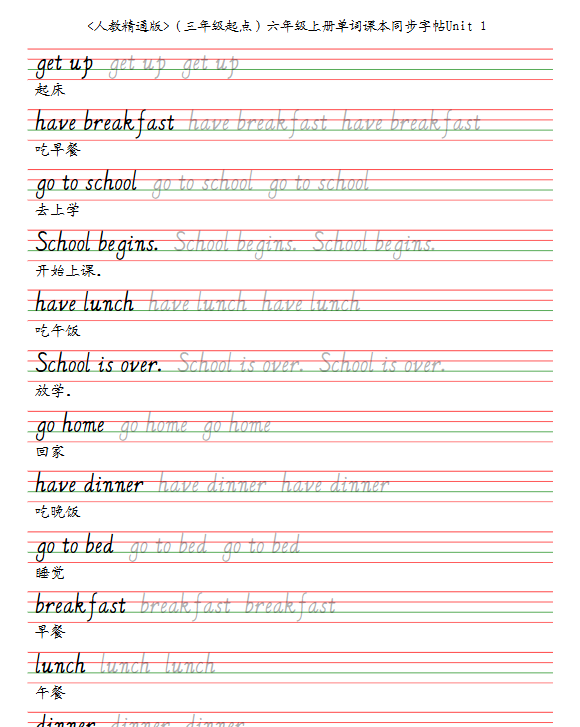 <人教精通版>(三年级起点)六年级上册单词课本同步字帖Unit 1
get up get up get up
起床
have breakfast have breakfast have breakfast
吃早餐
go to school go to school go to school
去上学
School begins. School begins. School begins.
开始上课.
have lunch have lunch have lunch
吃午饭
School is over. School is over. School is over.
放学.
go home go home go home
回家
have dinner have dinner have dinner
吃晚饭
go to bed go to bed go to bed
睡觉
breakfast breakfast breakfast
早餐
lunch lunch lunch
午餐
dinner dinner dinner